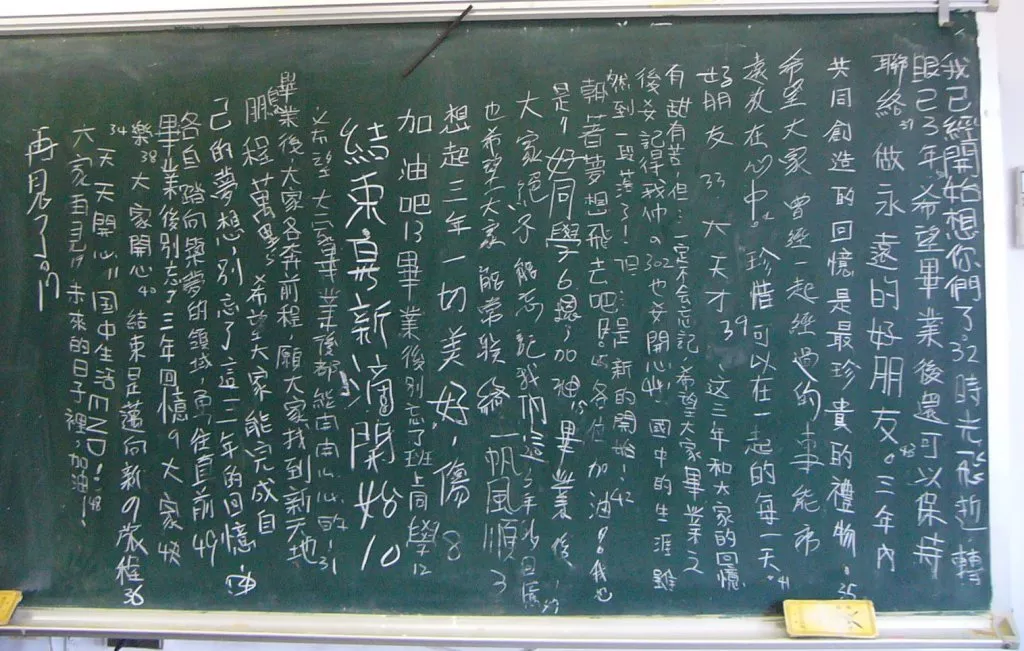 我已經開始想你們了32時光飛逝,轉
眼已3年,希望畢業後還可以保持
聯絡37做永遠的好朋友。43三年內
共同創造的回憶是最珍貴的禮物35
希望大家曾經一起經過的事能
在心中。珍惜可以在一起的每一天。41
好朋友33大天才39這三年和大家的回憶
有甜有苦,但一定不会忘記,希望大家畢業之
後要記得我們の302也要開心!國中的生涯雖
然到一段落了!但是新的開始!42
朝著夢想飛去吧!各位加油8我也
是11好同學6錢多加神畢業後,
大家絕不能忘記我們這3年
也希望大家能常联絡一帆風順3
想起三年一切美好,傷8
加油吧13畢業後別忘了班上同學12
結束是新滴開始10
希望大家畢業後都能開開心心的!31
畢業後,大家各奔前程,願大家找到新天地
鵬程萬里5希望大家能完成自
己的夢想,別忘了這三年的回憶
各自踏向築夢的領域,勇往直前49
畢業後別忘了三年回憶9大家快
樂38大家開心40結束是邁向新の旅程36
34天天開心11国中生活END!48
大家再見17未來的日子裡,加油!
再見了